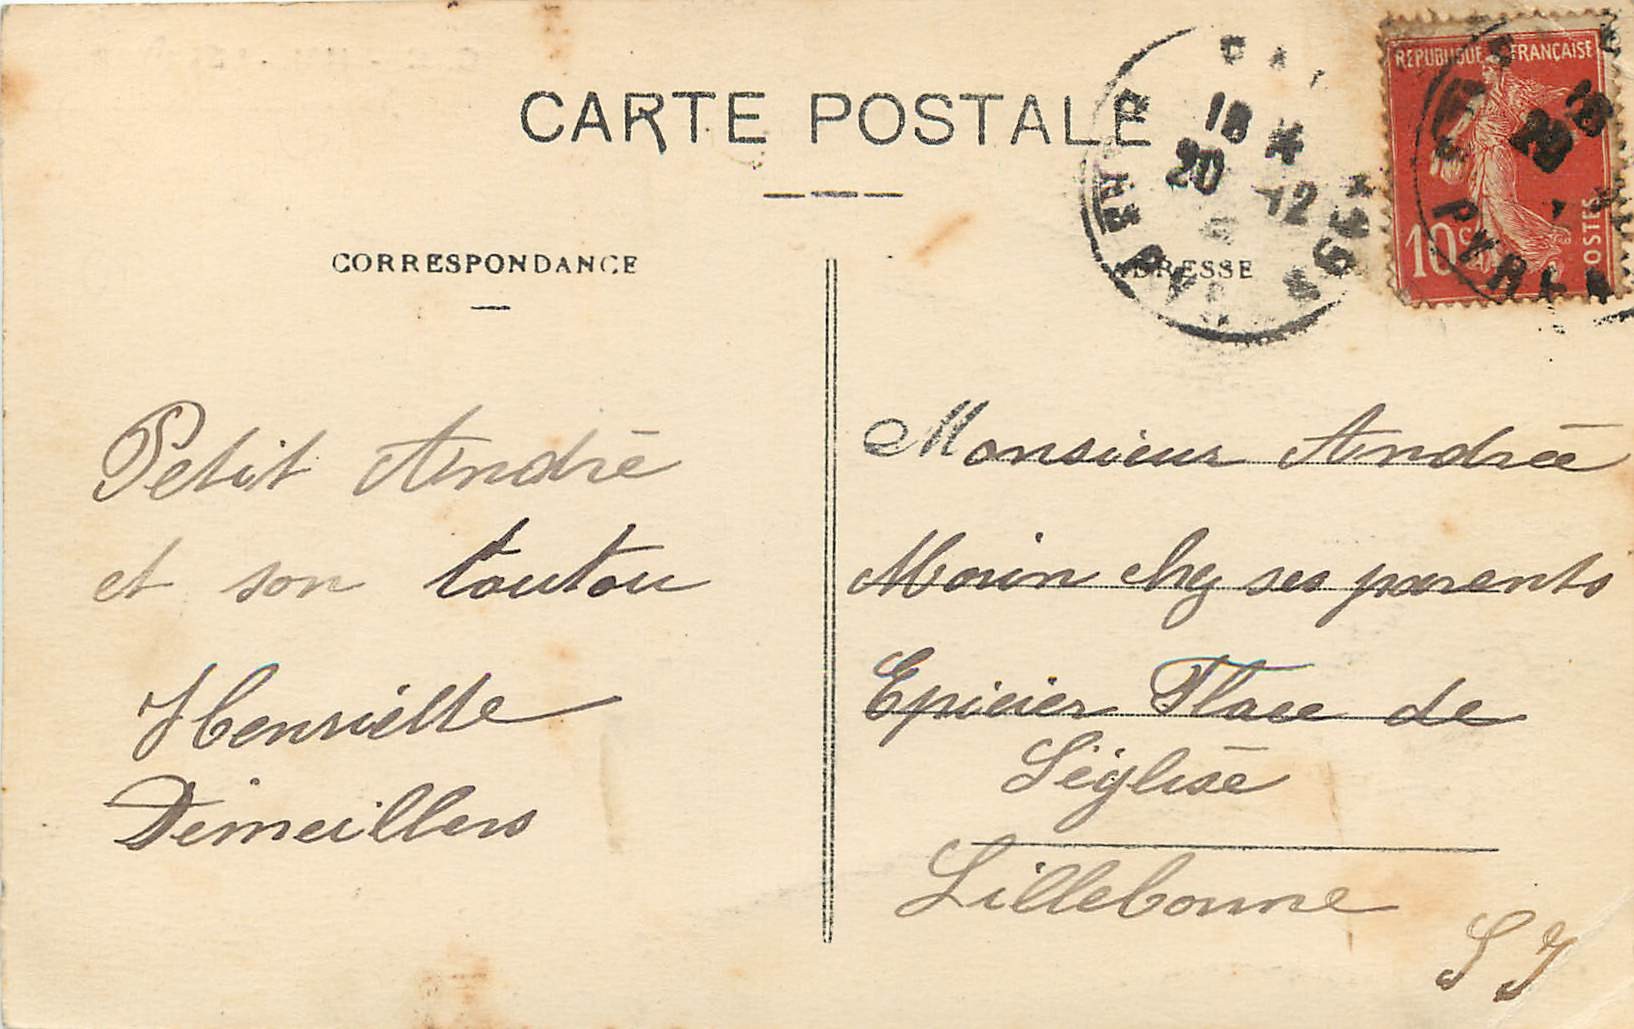 CARTE POSTALE
CORRESPONDANCE
REPUBLIQUE FRANÇAISE
10c
POSTES
18
20 -12
Petit André
et son toutou
Henriette
Demeillers
Monsieur Andrée
Morin chez ses parents
Epicier Place de
L'église
Lillebonne
S I